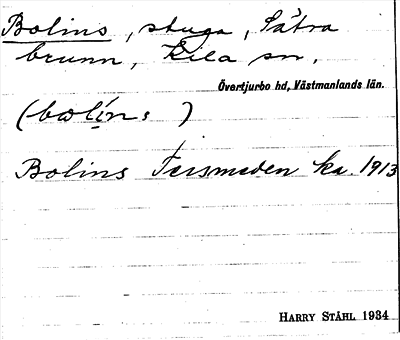 Bolins, stuga, Sätra
brunn, Kila sn,
Övertjurbo hd, Västmanlands län.
(bolíns)
Bolins Tersmeden ka. 1913
HARRY STÅHL 1934